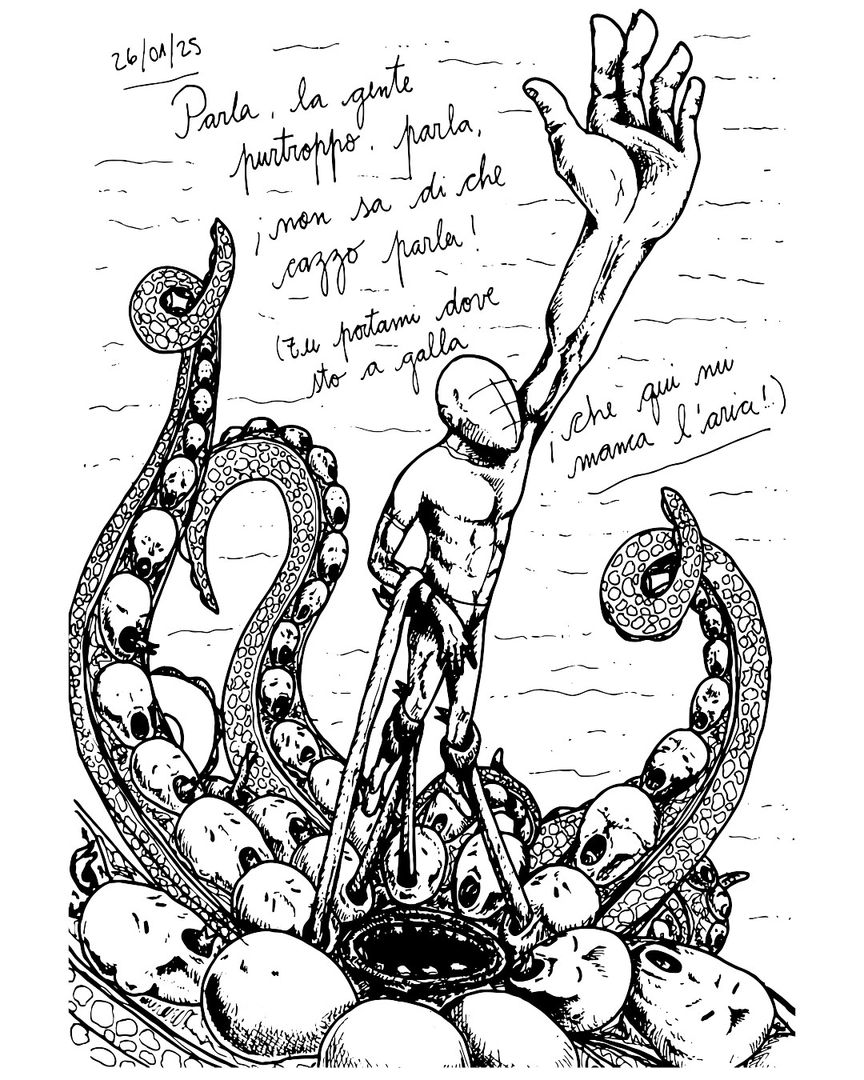 26/01/25
Parla, la gente
purtroppo. parla,
¡non sa di che
cazzo parla!
(Tu portami dove
sto a galla
¡che qui mi
manca l'aria!)